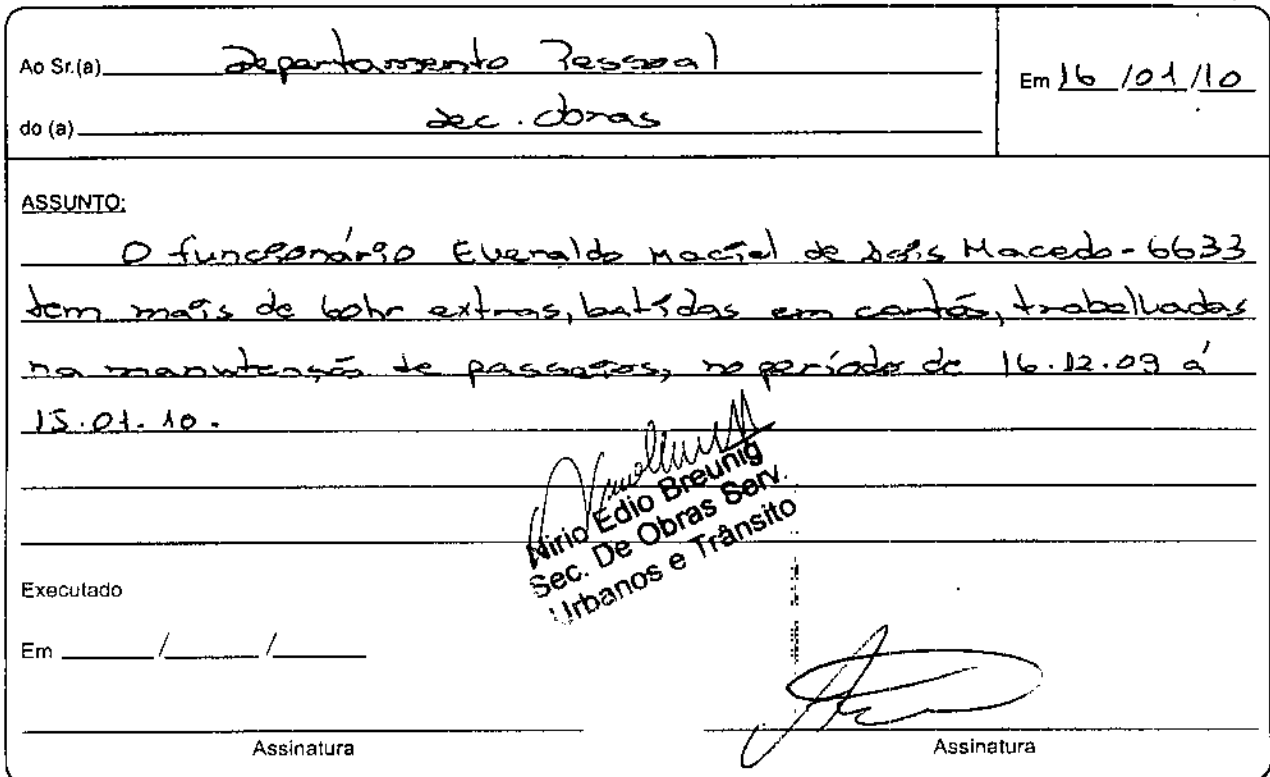 Ao Sr.(a) Departamento Pessoal
Em 16/01/10
do (a) Sec. Obras
ASSUNTO:
O funcionário Everaldo Maciel de Macedo - 6633
tem mais de 60hr extras, batidas em cartão, trabalhadas
na manutenção de passeios, no período de 16.12.09 á
15.01.10.
Nirio Edio Breunig
Sec. De Obras Serv.
Urbanos e Trânsito
Executado
Em ____/____/____
Assinatura
Assinatura